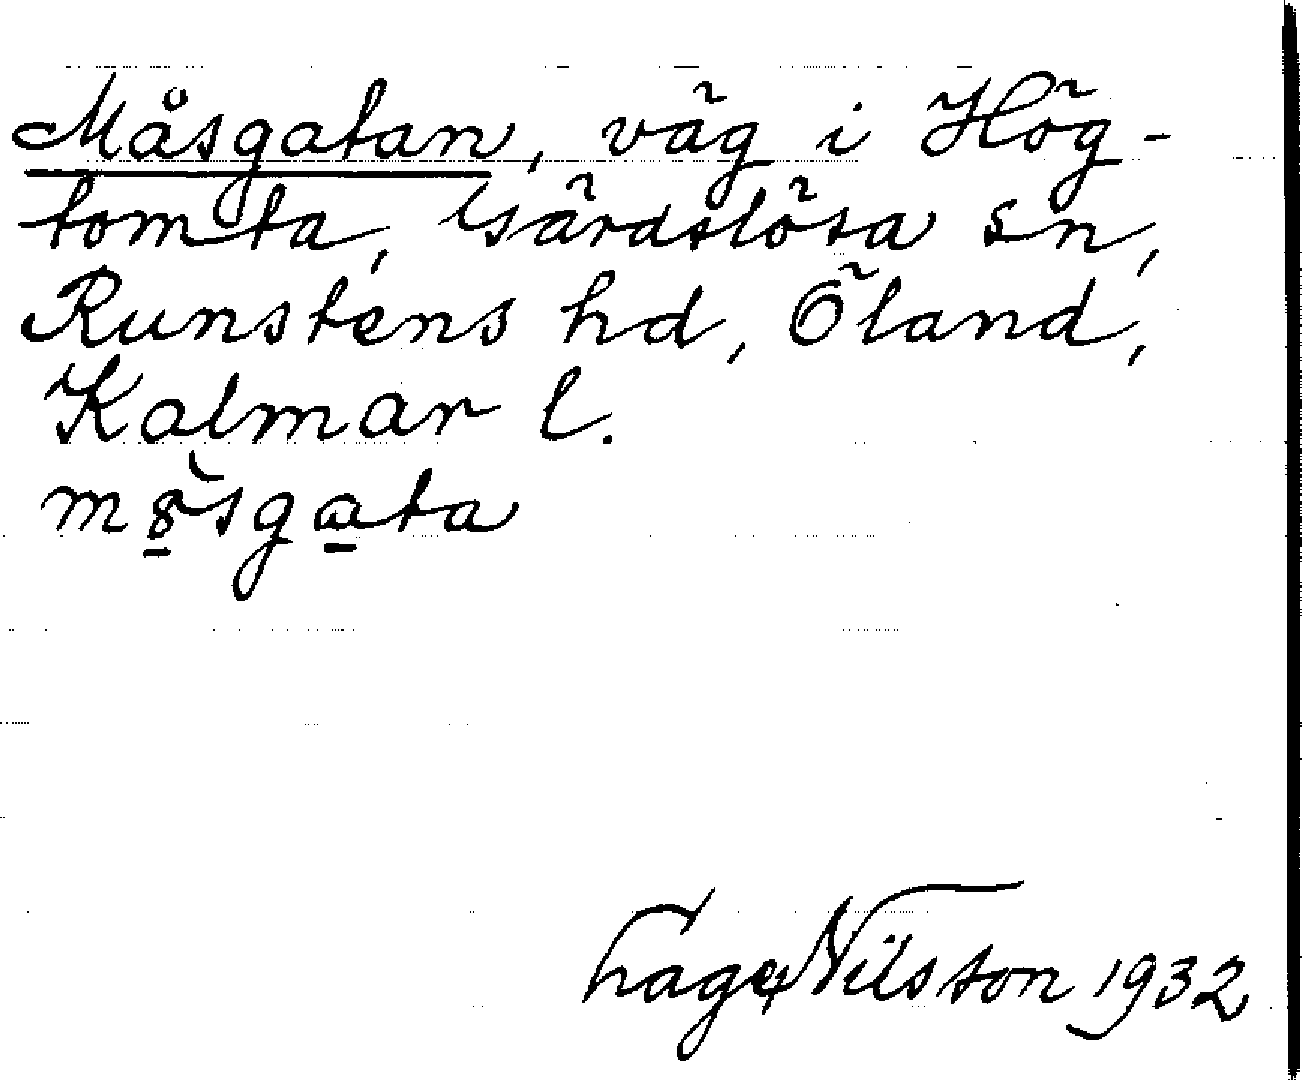 Måsgatan, väg i Hög-
tomta, Gärdslösa sn,
Runstens hd, Öland,
Kalmar l.
m gata
Hage Nilsson 1932